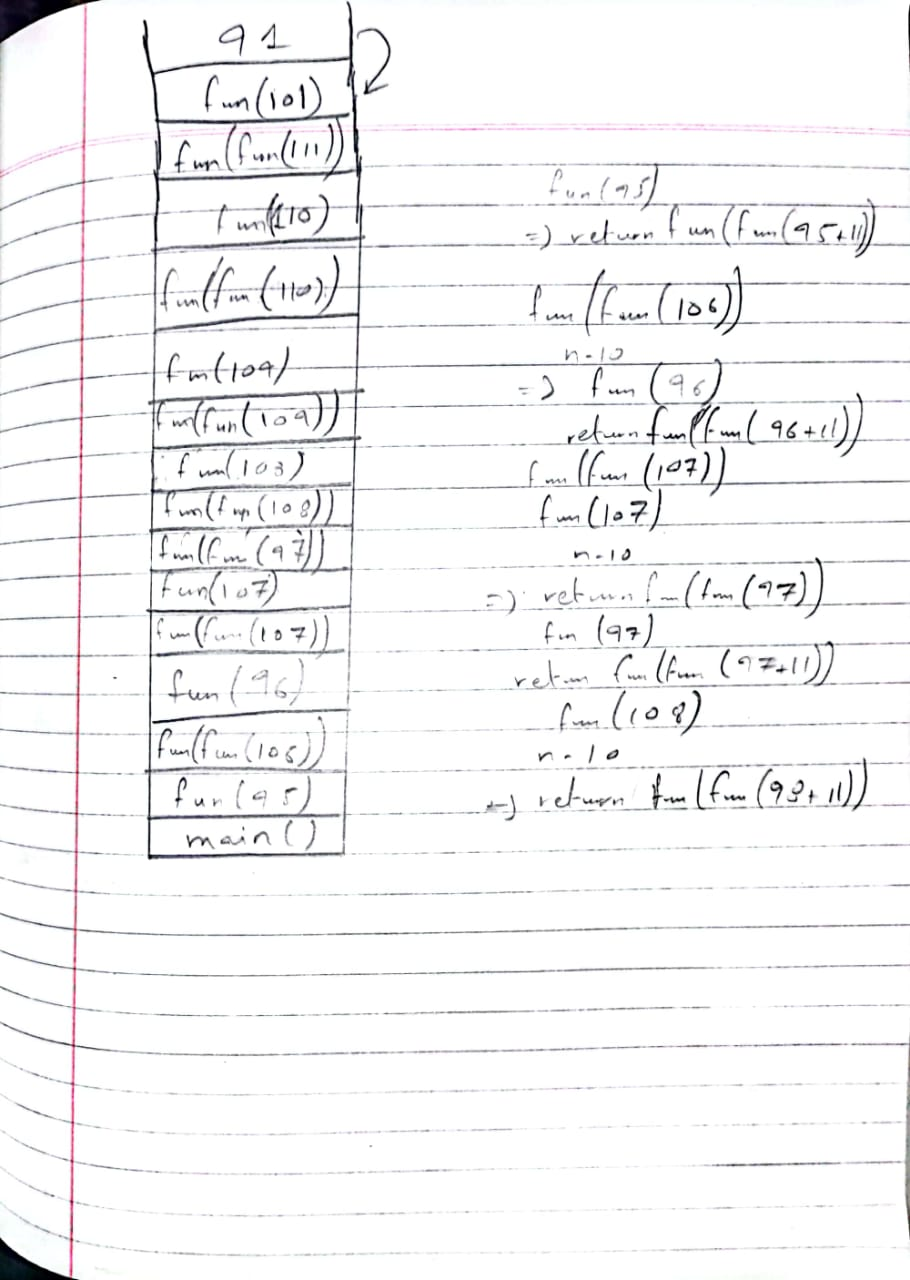 91
fun(101)
fun(fun(111))
fun(110)
fun(fun(110))
fun(109)
fun(fun(109))
fun(108)
fun(fun(108))
fun(fun(97))
fun(107)
fun(fun(107))
fun(96)
fun(fun(106))
fun(95)
main()
fun(95)
=> return fun(fun(95+11))
fun(fun(106))
n-10
=> fun(96)
return fun(fun(96+11))
fun(fun(107))
fun(107)
n-10
=> return fun(fun(97))
fun(97)
return fun(fun(97+11))
fun(108)
n-10
=> return fun(fun(98+11))